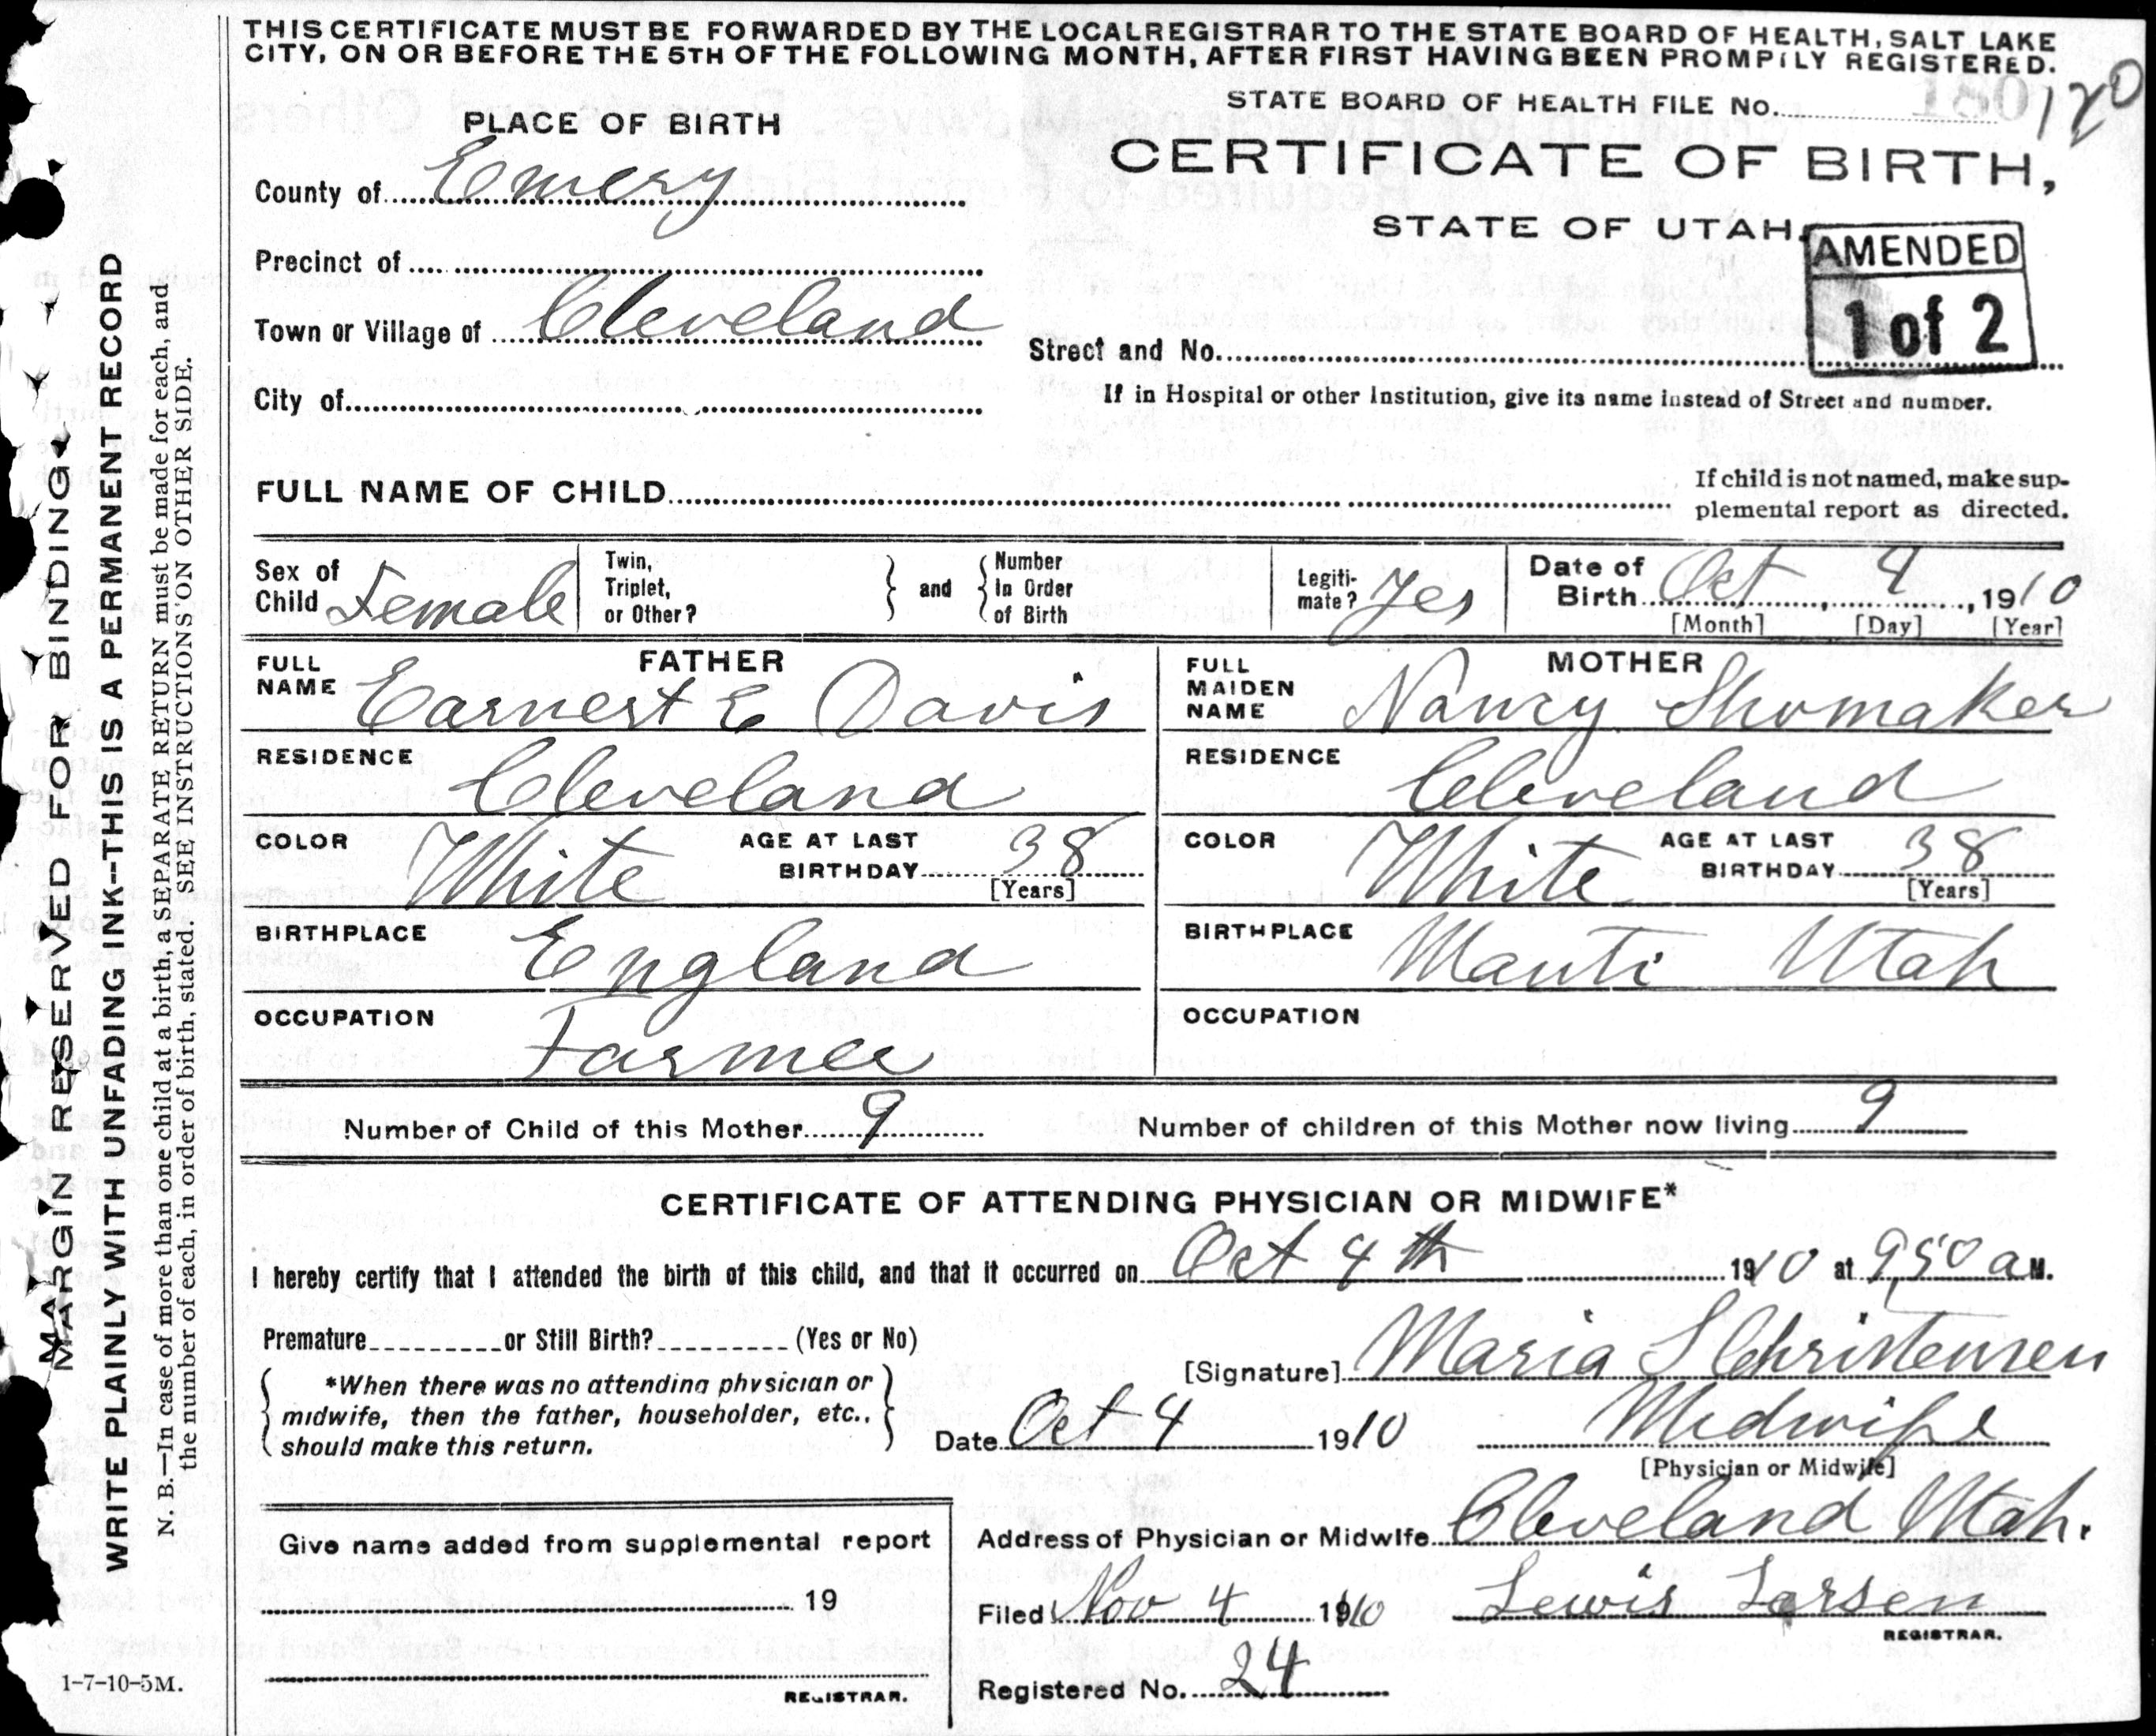 THIS CERTIFICATE MUST BE FORWARDED BY THE LOCAL REGISTRAR TO THE STATE BOARD OF HEALTH, SALT LAKE
CITY, ON OR BEFORE THE 5TH OF THE FOLLOWING MONTH, AFTER FIRST HAVING BEEN PROMPILY REGISTERED.
STATE BOARD OF HEALTH FILE No. 180 120
PLACE OF BIRTH
CERTIFICATE OF BIRTH,
County of Emery
STATE OF UTAH.
AMENDED
1 of 2
Precinct of
Town or Village of Cleveland
Street and No.
City of
If in Hospital or other Institution, give its name instead of Street and number.
FULL NAME OF CHILD
If child is not named, make sup-
plemental report as directed.
Sex of Child Female
Twin, Triplet, or Other?
and
Number In Order of Birth
Legiti- mate? Yes
Date of Birth Oct 4, 1910
[Month] [Day] [Year]
FATHER
FULL NAME Earnest E Davis
MOTHER
FULL MAIDEN NAME Nancy Shomaker
RESIDENCE Cleveland
RESIDENCE Cleveland
COLOR White AGE AT LAST BIRTHDAY 38 [Years]
COLOR White AGE AT LAST BIRTHDAY 38 [Years]
BIRTHPLACE England
BIRTHPLACE Manti Utah
OCCUPATION Farmer
OCCUPATION
Number of Child of this Mother 9 Number of children of this Mother now living 9
CERTIFICATE OF ATTENDING PHYSICIAN OR MIDWIFE*
I hereby certify that I attended the birth of this child, and that it occurred on Oct 4th 1910 at 9,50 a M.
Premature or Still Birth? (Yes or No)
[Signature] Maria S Christensen
*When there was no attending physician or
midwife, then the father, householder, etc.,
should make this return.
Date Oct 4 1910 Midwife
[Physician or Midwife]
Address of Physician or Midwife Cleveland Utah.
Give name added from supplemental report
19
REGISTRAR.
Filed Nov 4 1910 Lewis Larsen
REGISTRAR.
Registered No. 24
MARGIN RESERVED FOR BINDING
WRITE PLAINLY WITH UNFADING INK--THIS IS A PERMANENT RECORD
N. B.—In case of more than one child at a birth, a SEPARATE RETURN must be made for each, and
the number of each, in order of birth, stated. SEE INSTRUCTIONS ON OTHER SIDE.
1-7-10-5M.